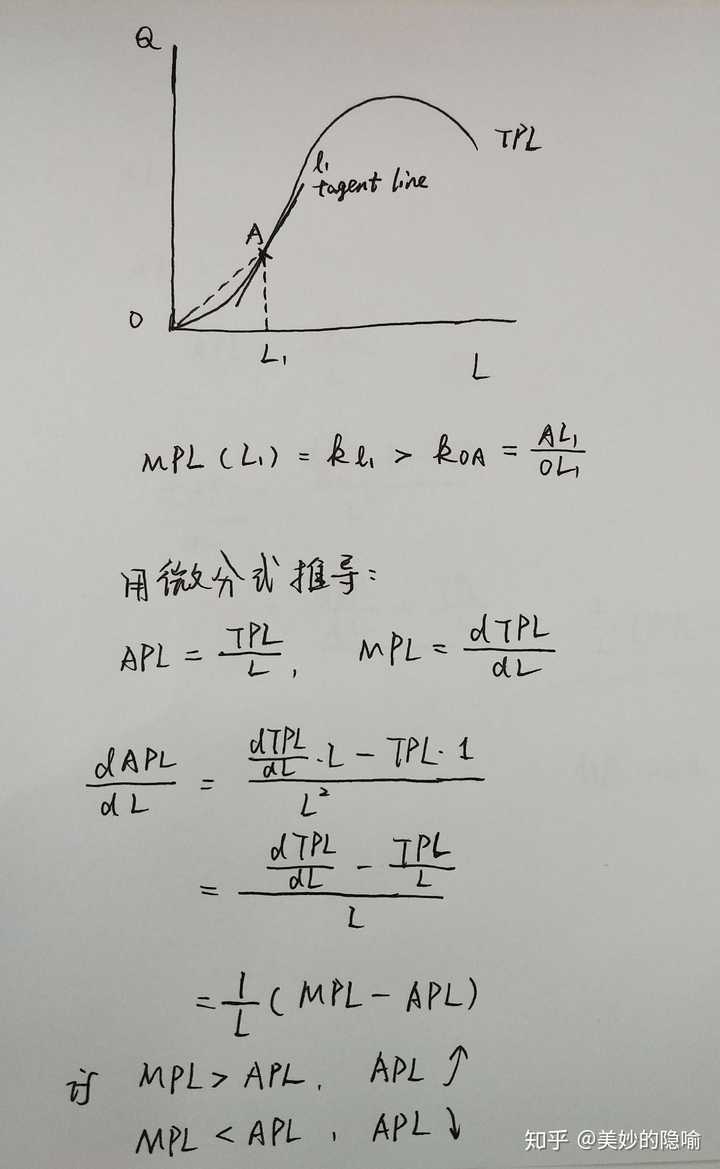 Q
TPL
l₁
tagent line
A
O
L₁
L
MPL (L₁) = kl₁ > kOA = AL₁/OL₁
用微分式推导:
APL = TPL/L, MPL = dTPL/dL
dAPL/dL = (dTPL/dL · L - TPL · 1)/L²
= (dTPL/dL - TPL/L)/L
= 1/L (MPL - APL)
MPL > APL, APL ↑
MPL < APL, APL ↓
知乎 @美妙的隐喻